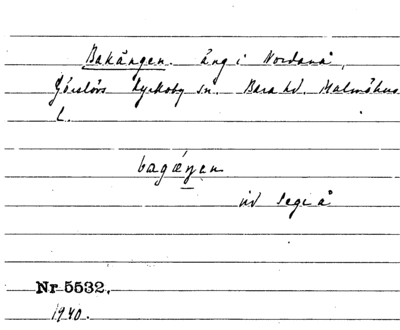 Bakängen. äng i Nordanå,
Görslövs Kyrkoby sn. Bara hd. Malmöhus
L.
bagæŋen
vid Segeå
Nr 5532.
1940.